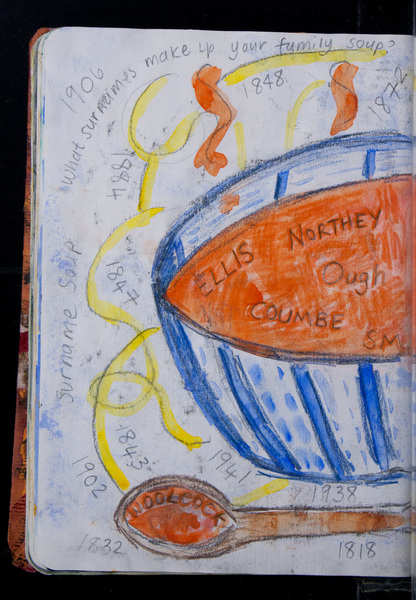 What surnames make up your family soup?
Surname Soup
1906
1848
1872
1884
184
ELLIS NORTHEY
Ough
COUMBE
SM
1843
1902
1941
1938
WOOLCOCK
1832
1818